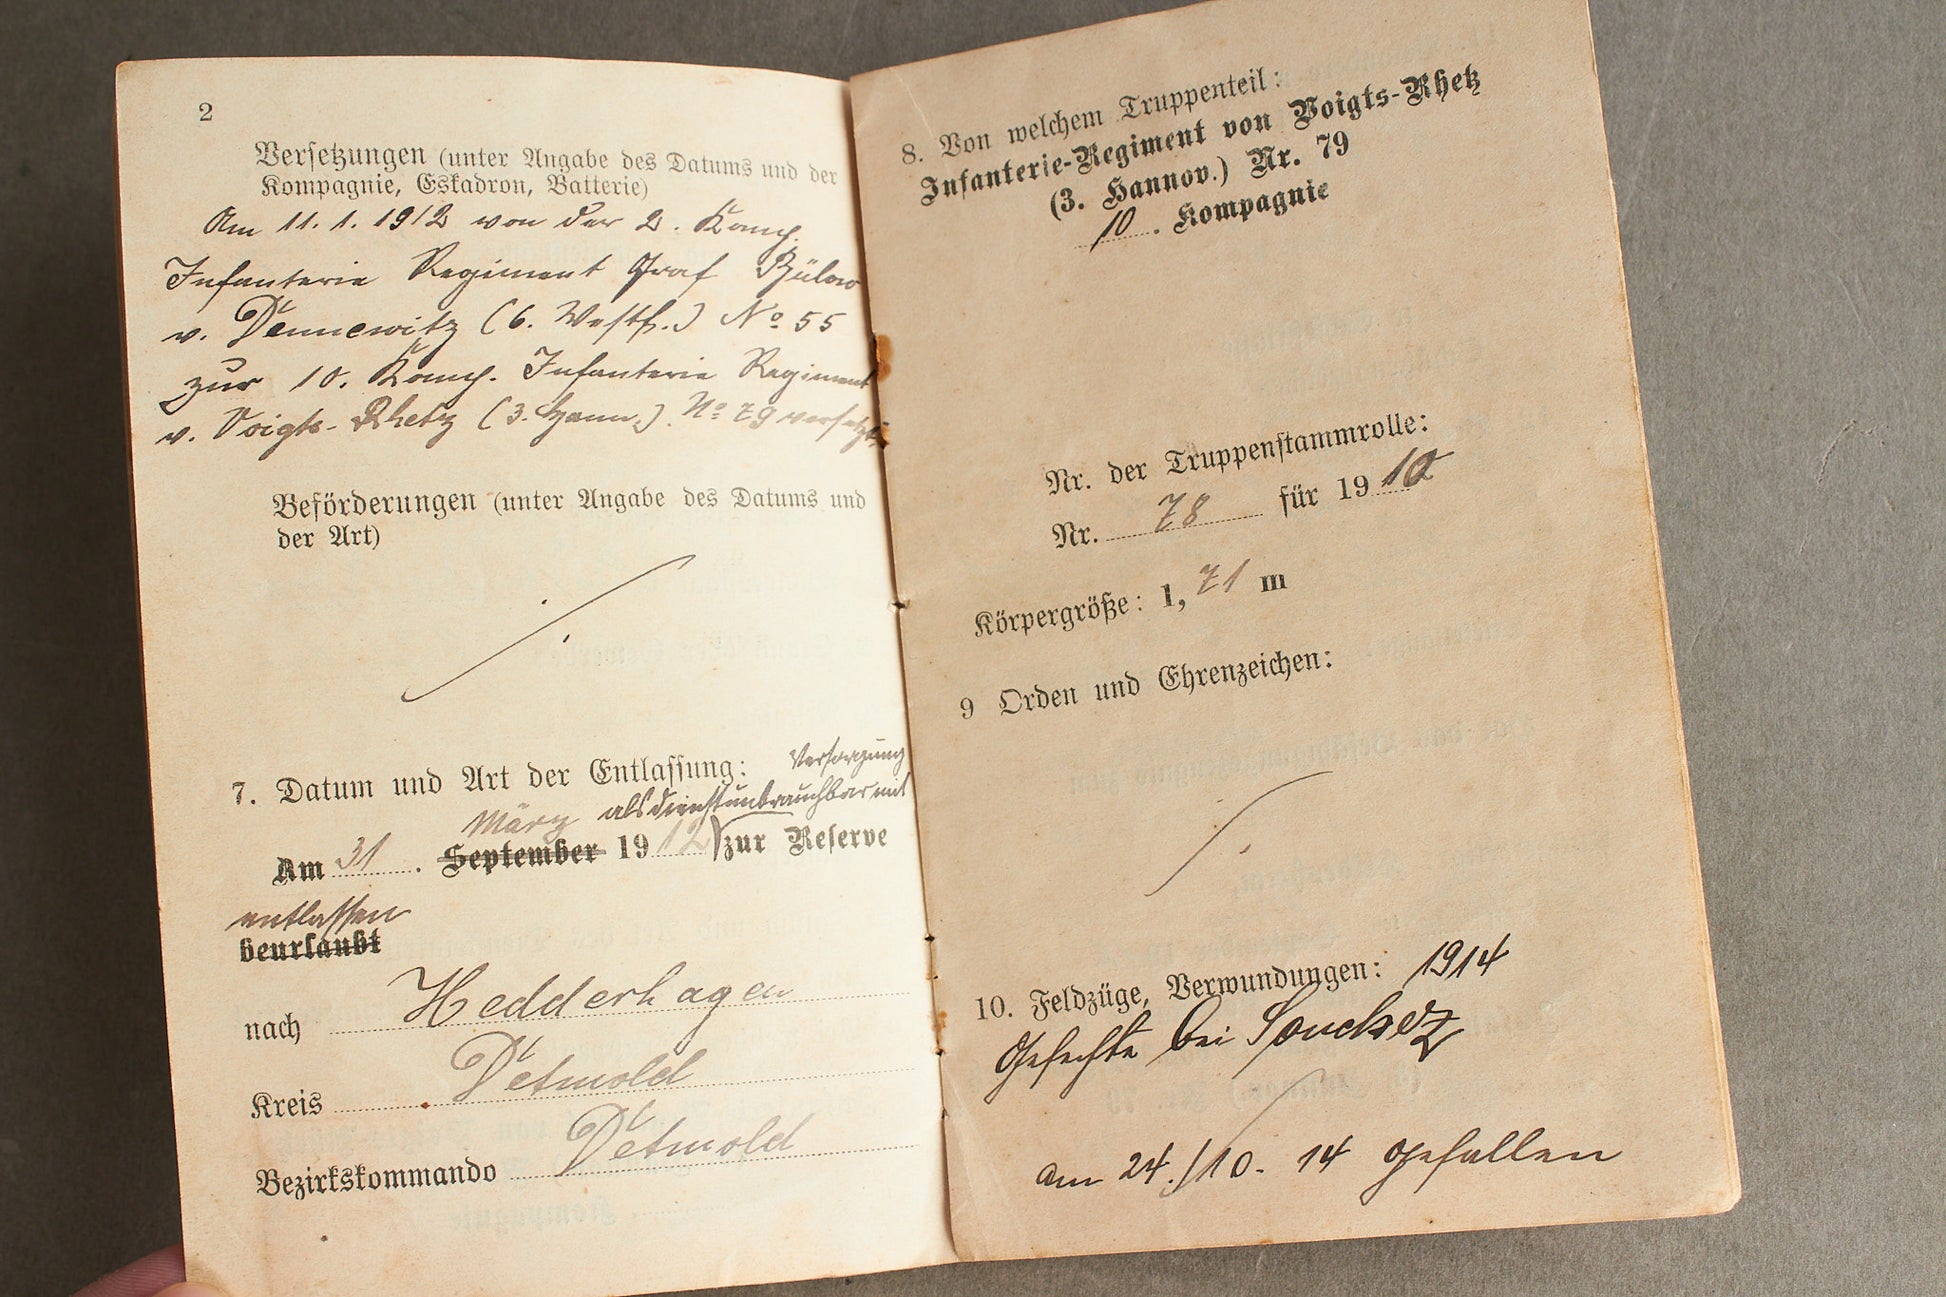 2
Versetzungen (unter Angabe des Datums und der
Kompagnie, Eskadron, Batterie)
Am 11. 1. 1912 von der 2. Komp.
Infanterie Regiment Graf Bülow
v. Dennewitz (6. Westf.) No 55
zur 10. Komp. Infanterie Regiment
v. Voigts-Rhetz (3. Hann.) No 79 versetzt.
Beförderungen (unter Angabe des Datums und
der Art)
7. Datum und Art der Entlassung: Versorgung
März als dienstunbrauchbar mit
Am 31. September 1912 zur Reserve
entlassen
beurlaubt
nach Hedderhagen
Kreis Detmold
Bezirkskommando Detmold
8. Von welchem Truppenteil:
Infanterie-Regiment von Voigts-Rhetz
(3. Hannov.) Nr. 79
10. Kompagnie
Nr. der Truppenstammrolle:
Nr. 78 für 1910
Körpergröße: 1,71 m
9 Orden und Ehrenzeichen:
10. Feldzüge, Verwundungen: 1914
Gefechte bei Souchez
am 24./10. 14 gefallen